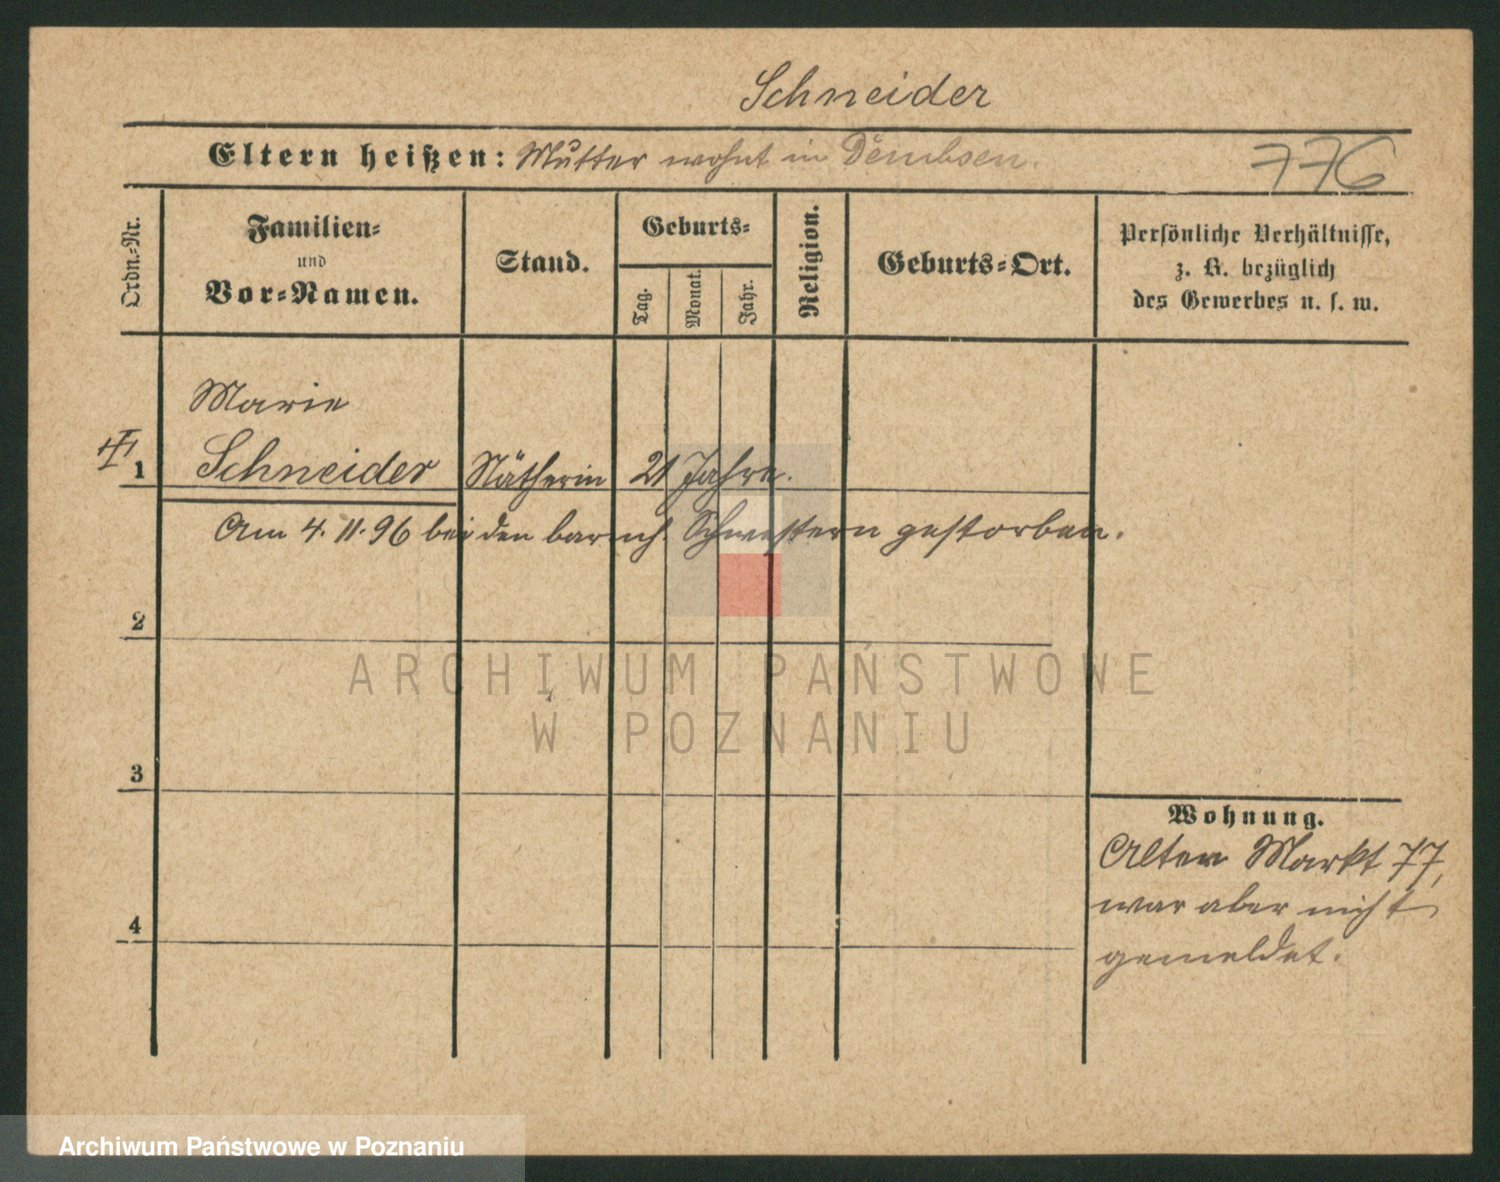 Schneider
Eltern heißen: Mutter wohnt in Dembsen.
776
Ordn.-Nr.
Familien-
und
Vor-Namen.
Stand.
Geburts-
Tag.
Monat.
Jahr.
Religion.
Geburts-Ort.
Persönliche Verhältnisse,
z. B. bezüglich
des Gewerbes u. s. w.
Marie
1 Schneider Nätherin 21 Jahre.
Am 4. 11. 96 bei den barmh. Schwestern gestorben.
2
ARCHIWUM PAŃSTWOWE
W POZNANIU
3
Wohnung.
Alter Markt 77,
war aber nicht
4
gemeldet.
Archiwum Państwowe w Poznaniu